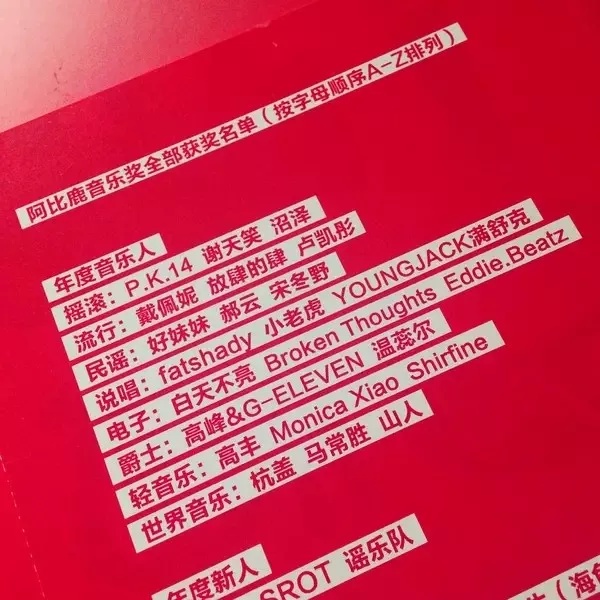 阿比鹿音乐奖全部获奖名单（按字母顺序A-Z排列）
年度音乐人
摇滚：P.K.14 谢天笑 沼泽
流行：戴佩妮 放肆的肆 卢凯彤
民谣：好妹妹 郝云 宋冬野
说唱：fatshady 小老虎 YOUNGJACK满舒克
电子：白天不亮 Broken Thoughts Eddie.Beatz
爵士：高峰&G-ELEVEN 温蕊尔
轻音乐：高丰 Monica Xiao Shirfine
世界音乐：杭盖 马常胜 山人
年度新人
SROT 谣乐队
（海龟